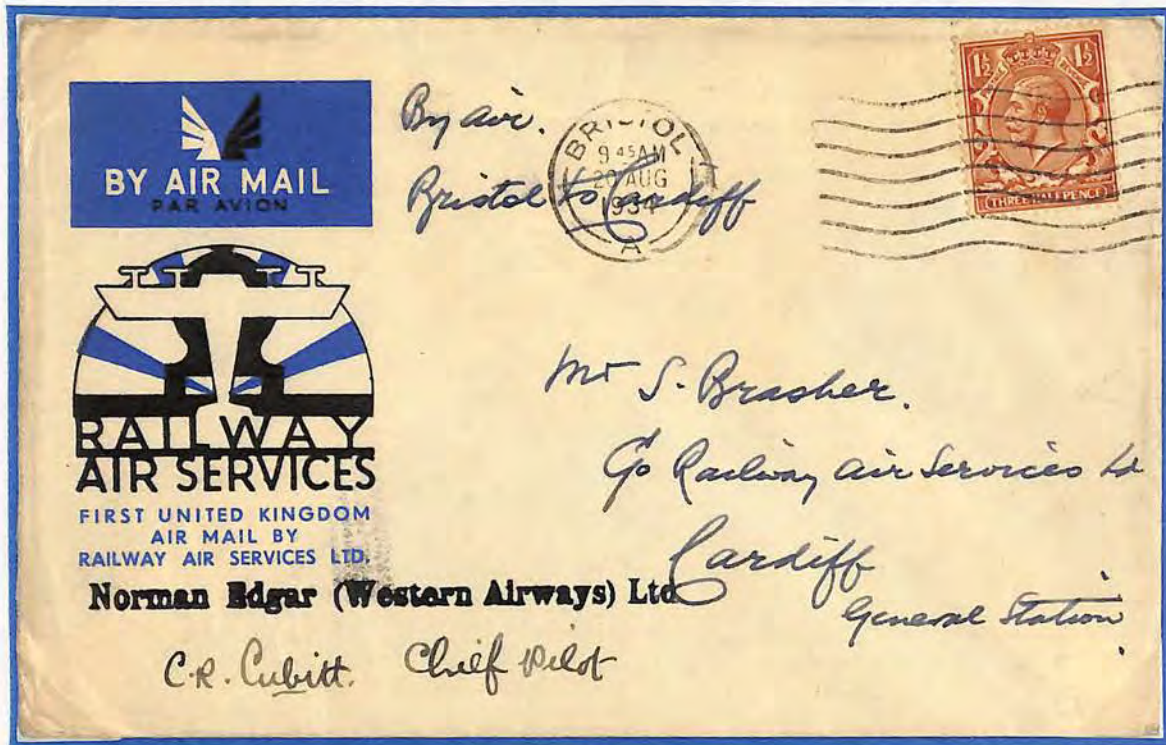 BY AIR MAIL
PAR AVION
By air.
Bristol to Cardiff
BRISTOL
9 45 AM
20 AUG
1934
A
1½ 1½
POSTAGE REVENUE
THREE HALFPENCE
RAILWAY
AIR SERVICES
FIRST UNITED KINGDOM
AIR MAIL BY
RAILWAY AIR SERVICES LTD.
Norman Edgar (Western Airways) Ltd
C.R. Cubitt. Chief Pilot
Mr S. Brasher.
C/o Railway Air Services Ld
Cardiff
General Station.